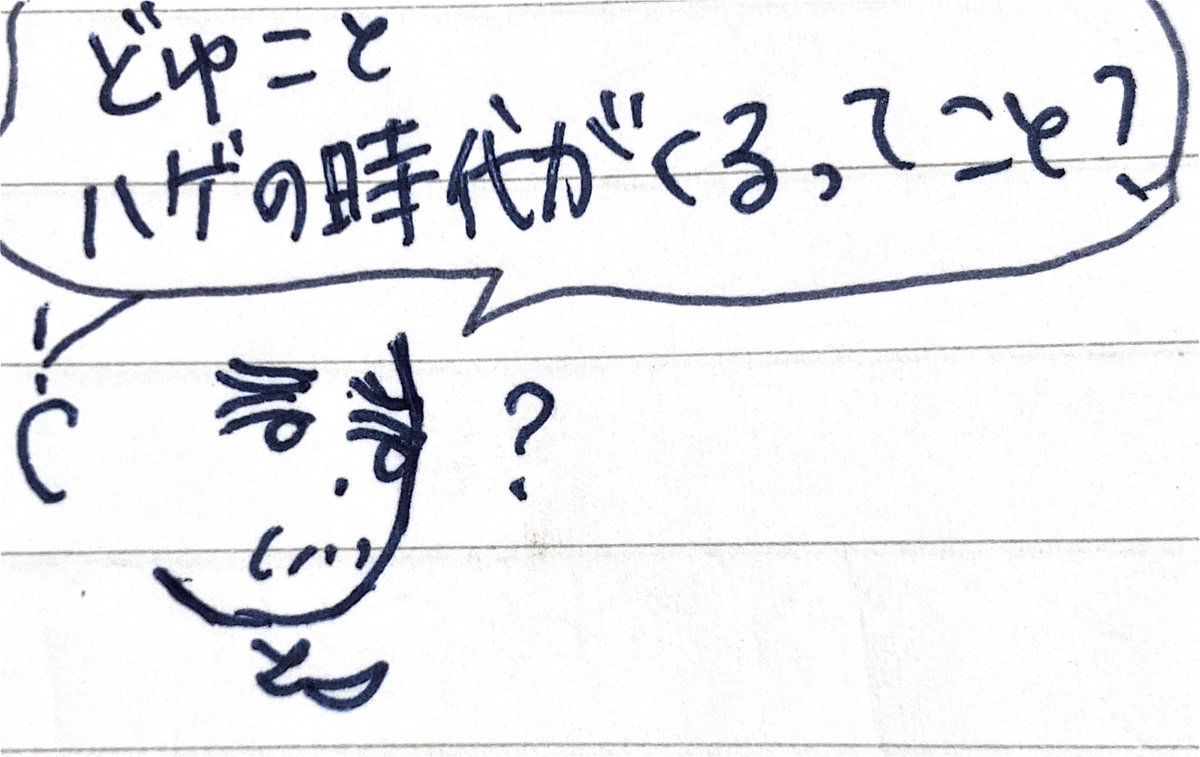 どゆこと
ハゲの時代がくる,てこと?
?